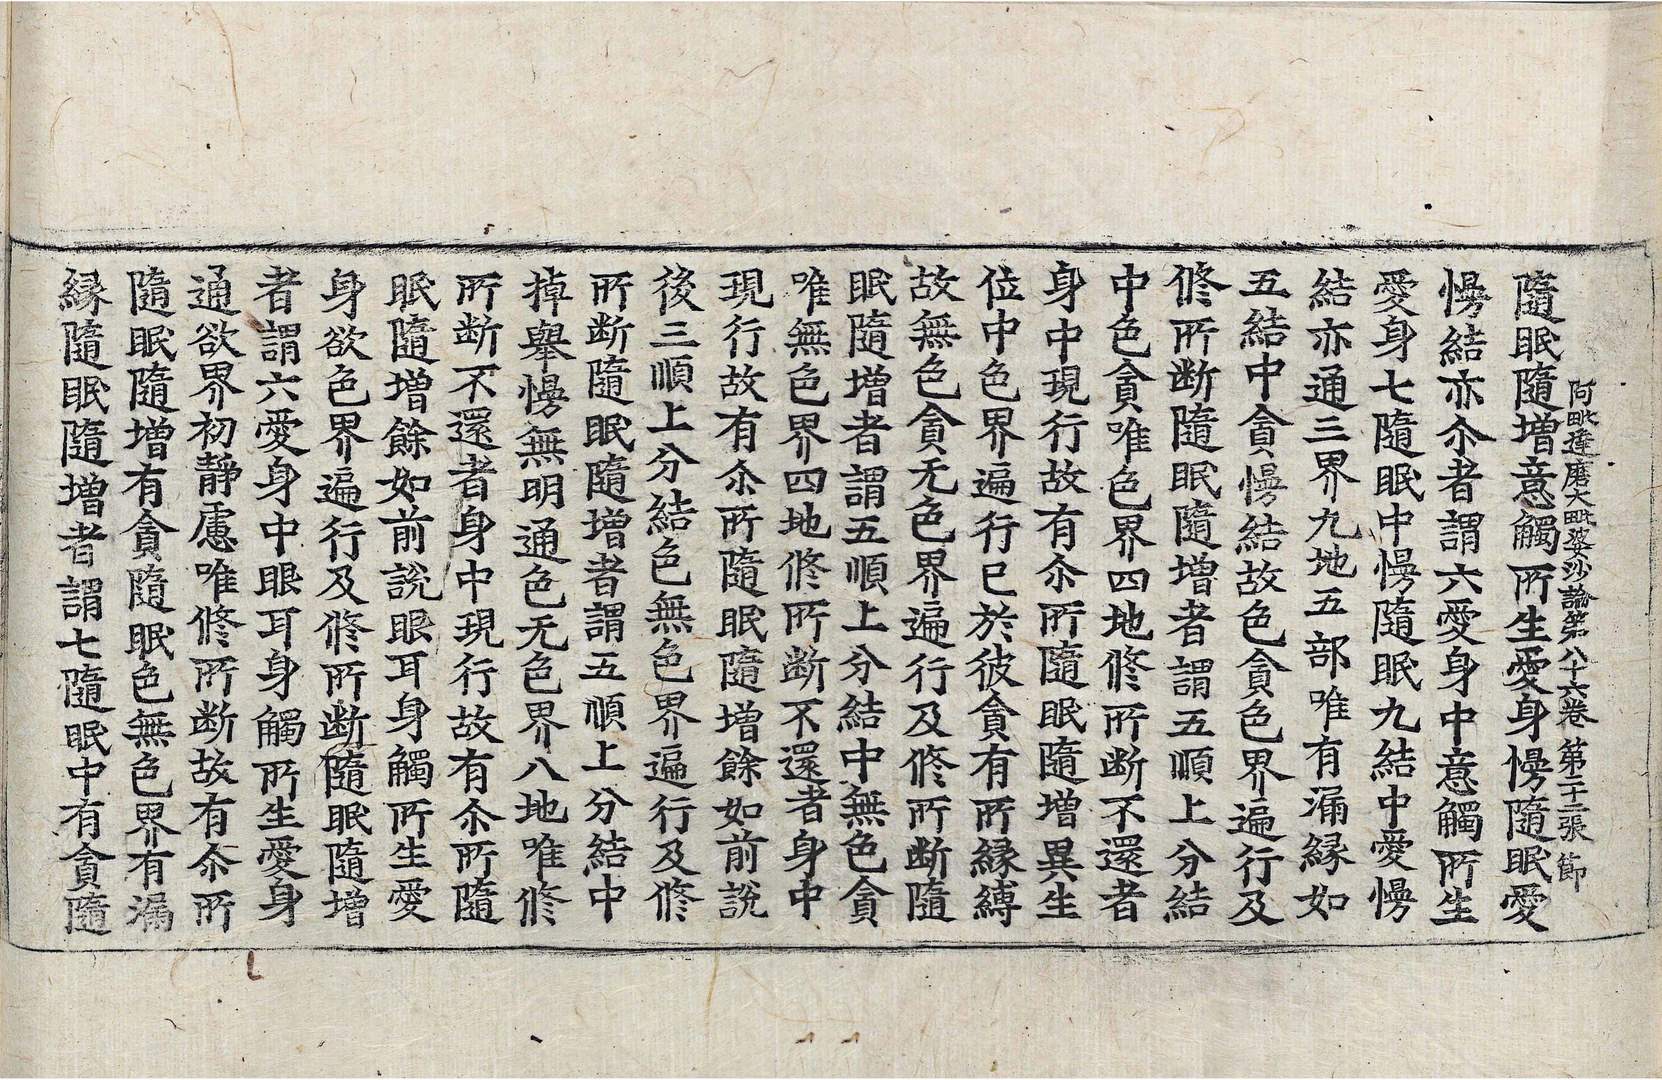 阿毗達磨大毗婆沙論第八十六卷 第二十二張 節
隨眠隨增意觸所生愛身慢隨眠愛
慢結亦尒者謂六愛身中意觸所生
愛身七隨眠中慢隨眠九結中愛慢
結亦通三界九地五部唯有漏緣如
五結中貪慢結故色貪色界遍行及
修所斷隨眠隨增者謂五順上分結
中色貪唯色界四地修所斷不還者
身中現行故有尒所隨眠隨增異生
位中色界遍行已於彼貪有所緣縛
故無色貪无色界遍行及修所斷隨
眠隨增者謂五順上分結中無色貪
唯無色界四地修所斷不還者身中
現行故有尒所隨眠隨增餘如前說
後三順上分結色無色界遍行及修
所斷隨眠隨增者謂五順上分結中
掉舉慢無明通色无色界八地唯修
所斷不還者身中現行故有尒所隨
眠隨增餘如前說眼耳身觸所生愛
身欲色界遍行及修所斷隨眠隨增
者謂六愛身中眼耳身觸所生愛身
通欲界初靜慮唯修所斷故有尒所
隨眠隨增有貪隨眠色無色界有漏
緣隨眠隨增者謂七隨眠中有貪隨